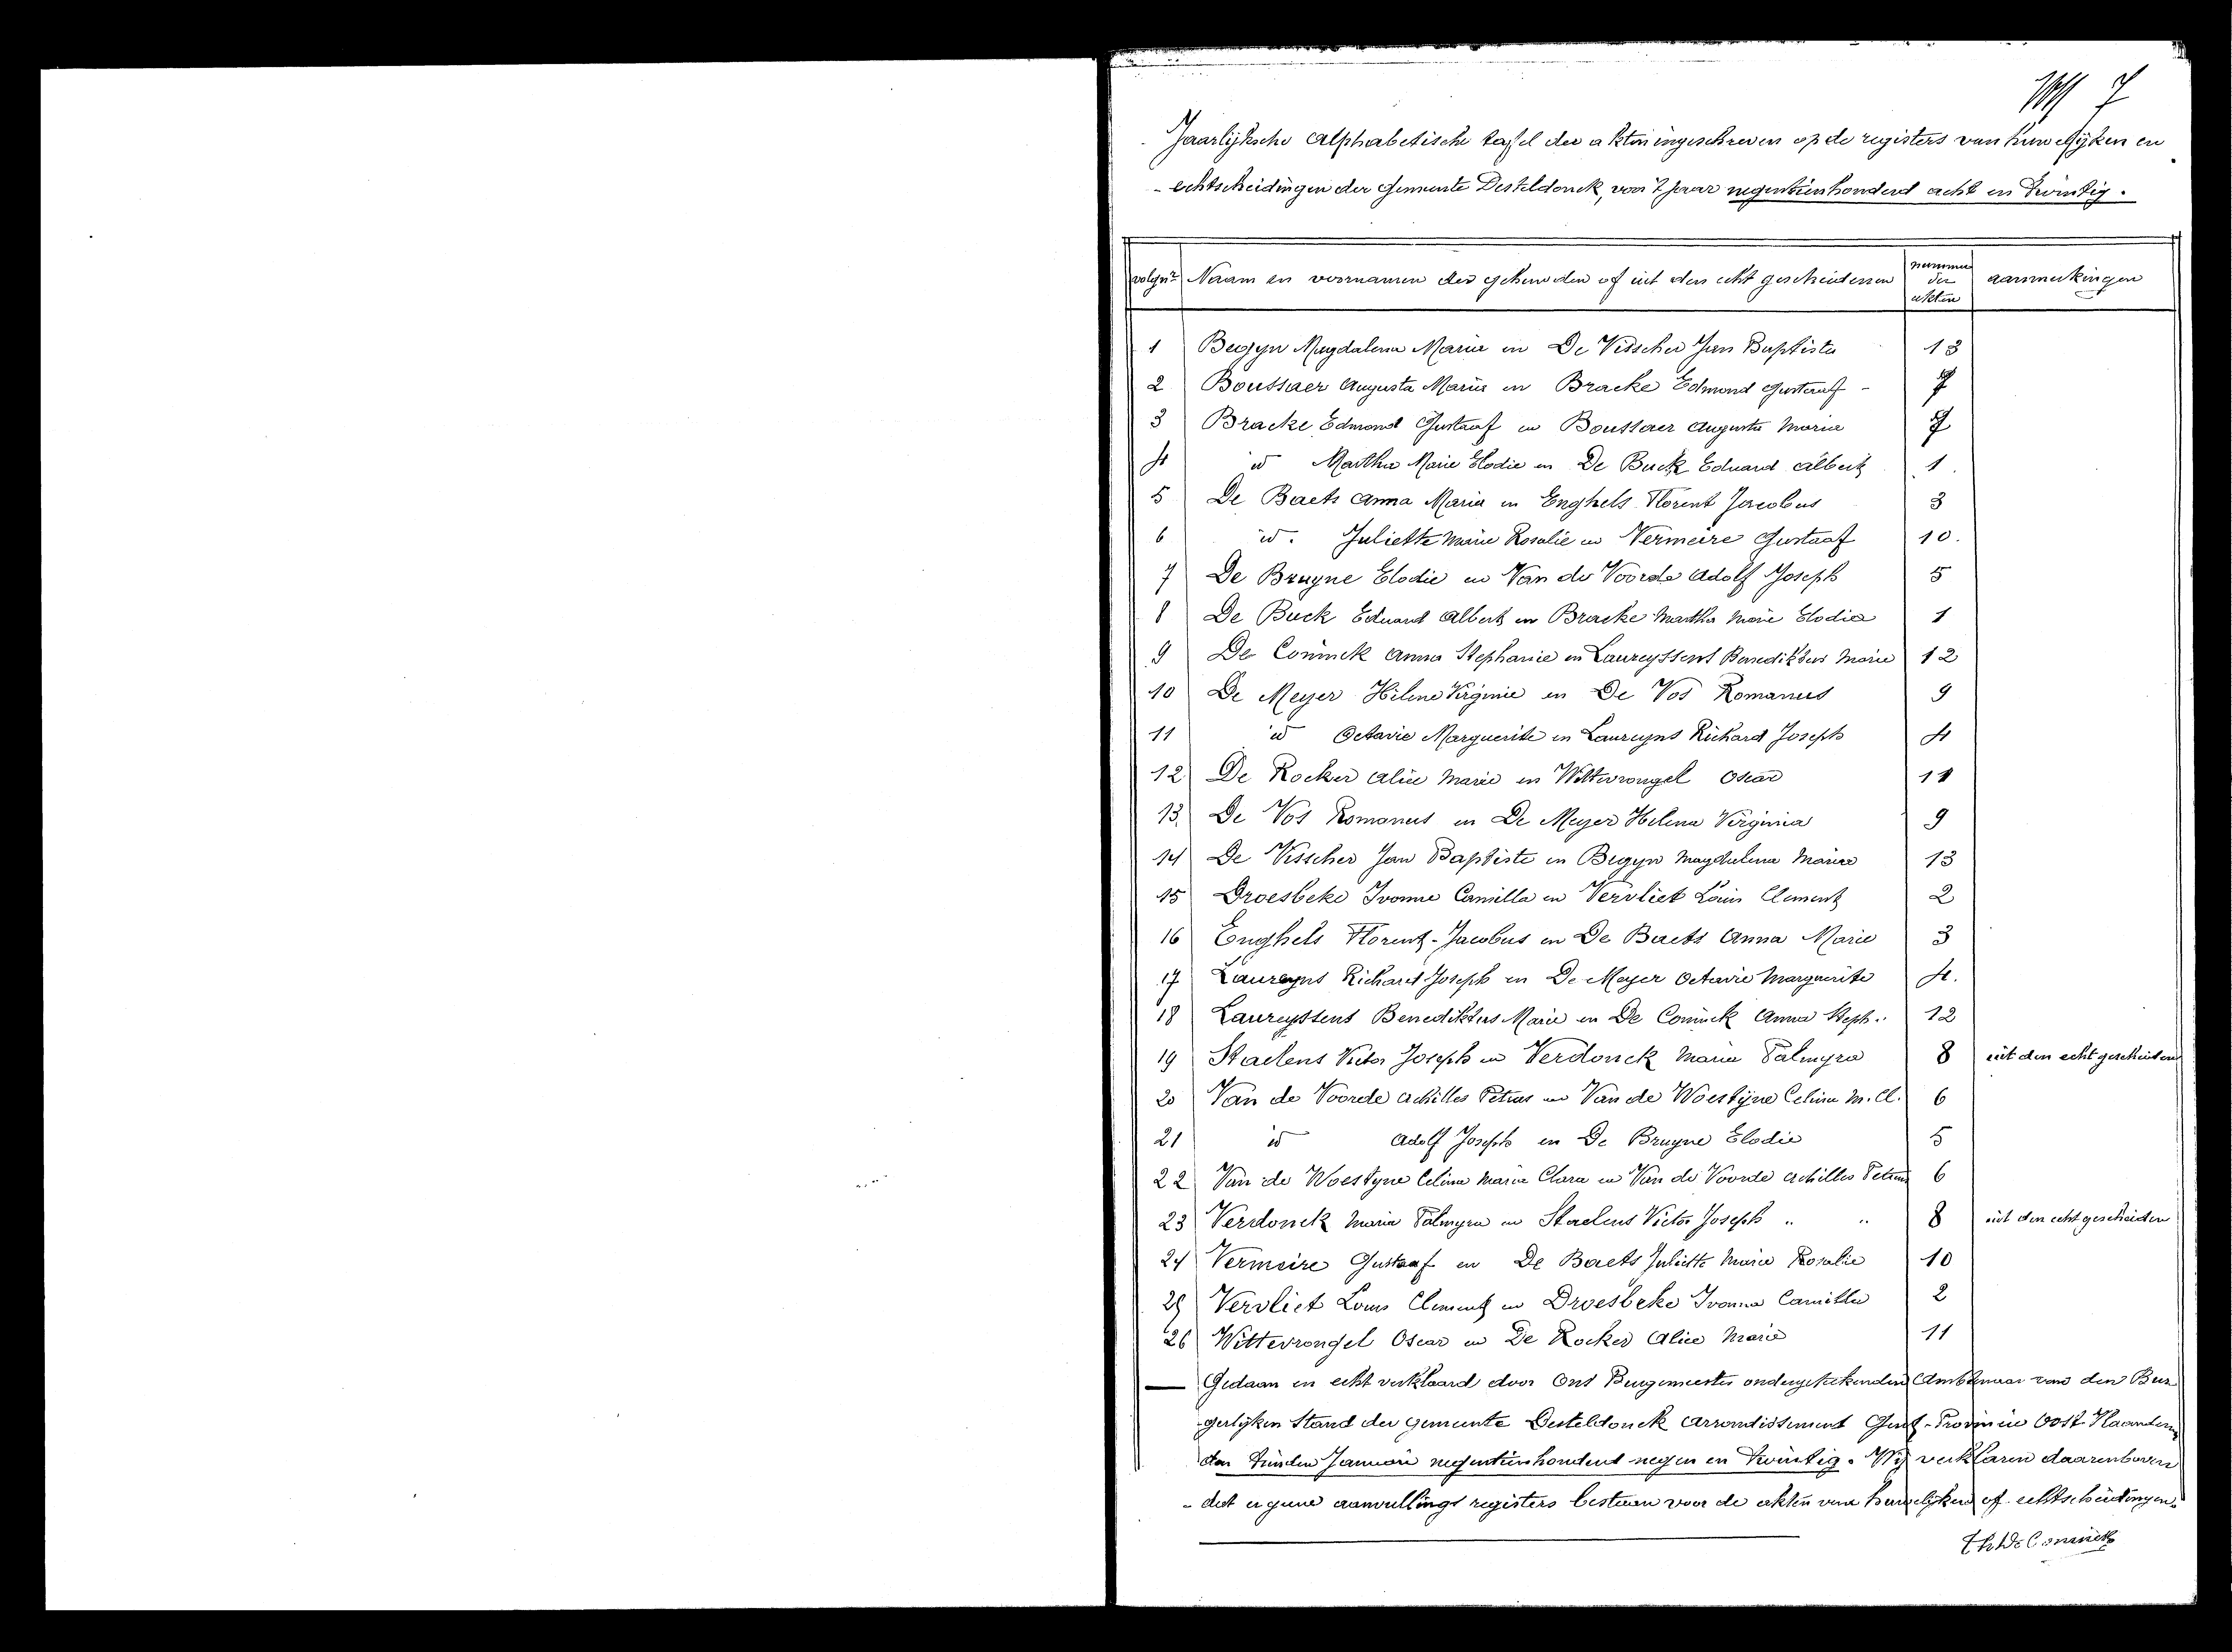 7
Jaarlijksche alphabetische tafel der akten ingeschreven op de registers van huwelijken en
echtscheidingen der gemeente Desteldonck, voor 't jaar negentienhonderd acht en twintig.
volgnr Naam en voornamen der gehuwden of uit den echt gescheidenen nummer der akten aanmerkingen
1 Begyn Magdalena Maria en De Visscher Jan Baptiste 13
2 Boussaer Augusta Maria en Bracke Edmond Gustaaf - 7
3 Bracke Edmond Gustaaf en Boussaer Augusta Maria 7
4 id Martha Marie Elodie en De Buck Eduard Albert 1.
5 De Baets Anna Maria en Enghels Florent Jacobus 3
6 id. Juliette Marie Rosalie en Vermeire Gustaaf 10.
7 De Bruyne Elodie en Van de Voorde Adolf Joseph 5
8 De Buck Eduard Albert en Bracke Martha Marie Elodie 1
9 De Coninck Anna Stephanie en Laureyssens Benediktus Marie 12
10 De Meyer Helene Virginie en De Vos Romanus 9
11 id Octavie Marguerite en Laureyns Richard Joseph 4
12 De Rocker Alice Marie en Wittevrongel Oscar 11
13. De Vos Romanus en De Meyer Helena Virginia 9
14 De Visscher Jan Baptiste en Begyn Magdalena Maria 13
15 Droesbeke Ivonne Camilla en Vervliet Louis Clement 2
16 Enghels Florent-Jacobus en De Baets Anna Marie 3
17 Laureyns Richard Joseph en De Meyer Octavie Marguerite 4.
18 Laureyssens Benediktus Marie en De Coninck Anna Steph.. 12
19 Staelens Victor Joseph en Verdonck Maria Palmyra 8 uit den echt gescheiden
20 Van de Voorde Achilles Petrus en Van de Woestijne Celina M. Cl. 6
21 id Adolf Joseph en De Bruyne Elodie 5
22 Van de Woestyne Celina Maria Clara en Van de Voorde Achilles Petrus 6
23 Verdonck Maria Palmyra en Staelens Victor Joseph " " 8 uit den echt gescheiden
24 Vermeire Gustaaf en De Baets Juliette Marie Rosalie 10
25 Vervliet Louis Clement en Droesbeke Ivonna Camilla 2
26 Wittevrongel Oscar en De Rocker Alice Marie 11
Gedaan en echt verklaard door Ons Burgemeester ondergeteekenden Ambtenaar van den Bur
gerlijken Stand der gemeente Desteldonck arrondissement Gent - Provincie Oost Vlaanderen
den tienden Januari negentienhonderd negen en twintig. Wij verklaren daarenboven
- dat er geene aanvullings registers bestaan voor de akten van huwelijken of echtscheidingen.
Th De Coninck